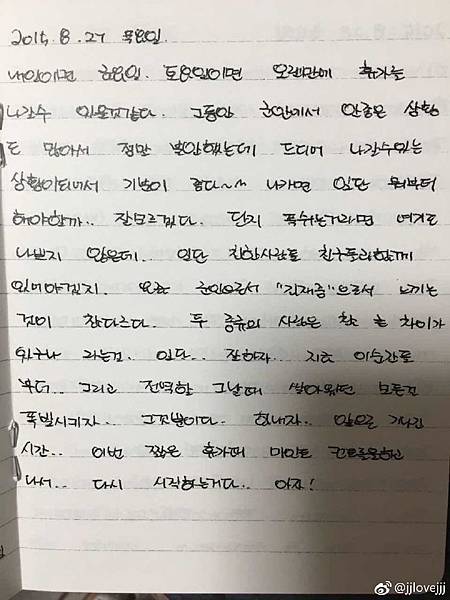 2015. 8. 27 목요일
내일이면 금요일. 토요일이면 오랜만에 휴가를
나갈수 있을것같다. 그동안 군안에서 안좋은 상황
도 많아서 정말 불안했는데 드디어 나갈수있는
상황이되어서 기분이 좋다~~ 나가면 일단 뭐부터
해야할까.. 잘모르겠다. 단지 푹쉬는거라면 여기도
나쁘지 않은데.. 일단 친한사람들 친구들과함께
있어야겠지. 요즘 군인으로서 "김재중"으로서 느끼는
것이 참다르다. 두 종류의 사람은 참 큰 차이가
있구나 라는걸. 일단.. 잘하자.. 지금 이순간도
부터... 그리고 전역할 그날때 쌓아뒀던 모든걸
폭발시키자. 그것뿐이다. 힘내자.. 앞으로 기나긴
시간.. 이번 짧은 휴가때 마인드 컨트롤을하고
나서.. 다시 시작하는거다.. 아자!
@jjlovejjj